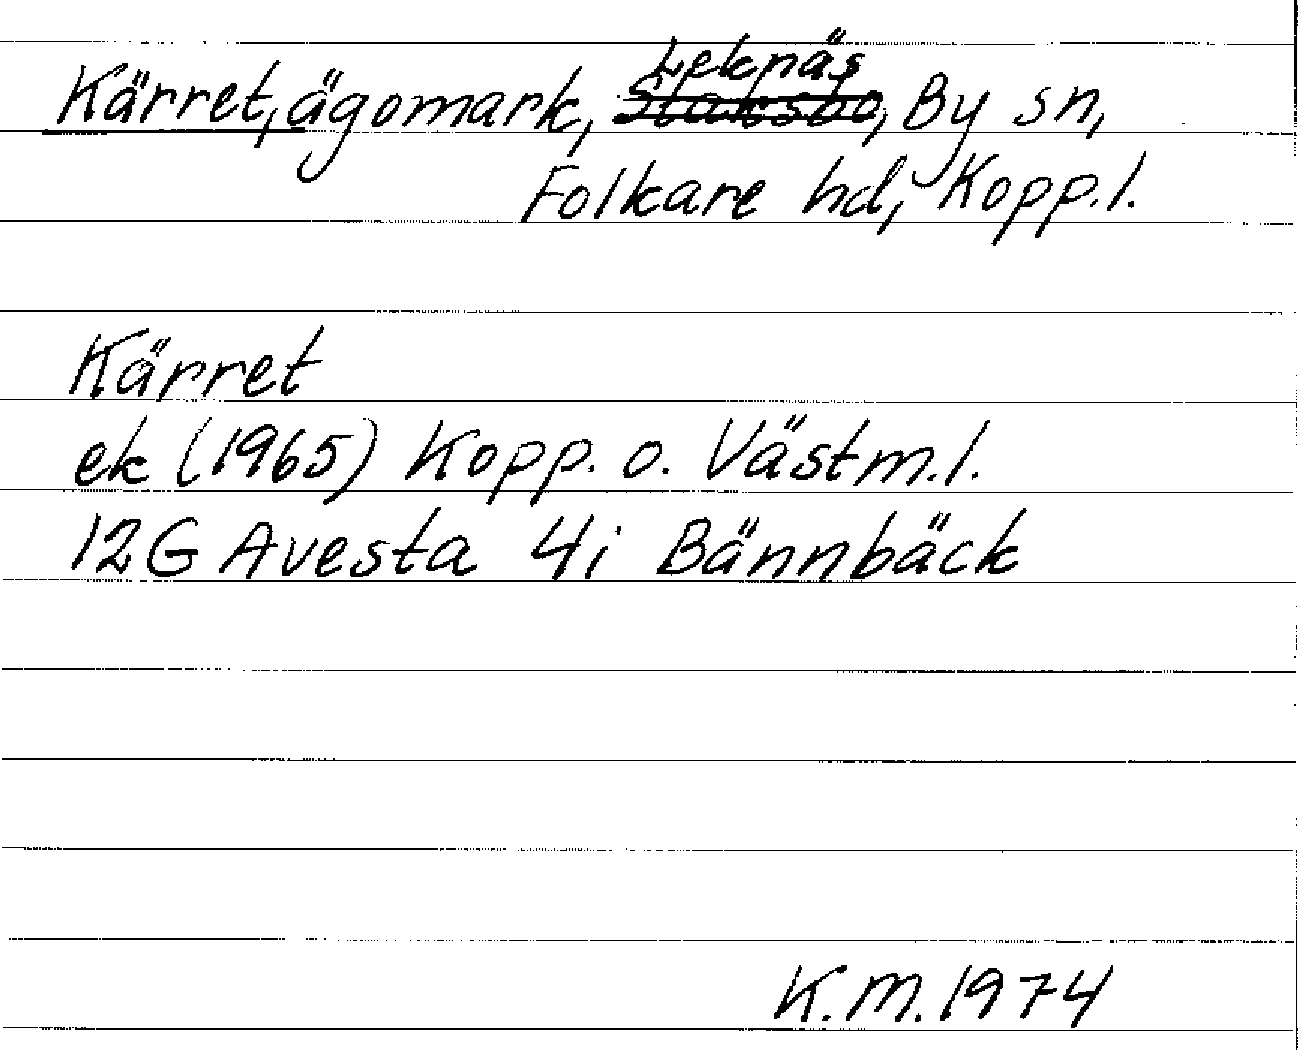 Leknäs
Kärret, ägomark, Staksbo, By sn,
Folkare hd, Kopp.l.
Kärret
ek (1965) Kopp. o. Västm.l.
12G Avesta 4i Bännbäck
K.M. 1974